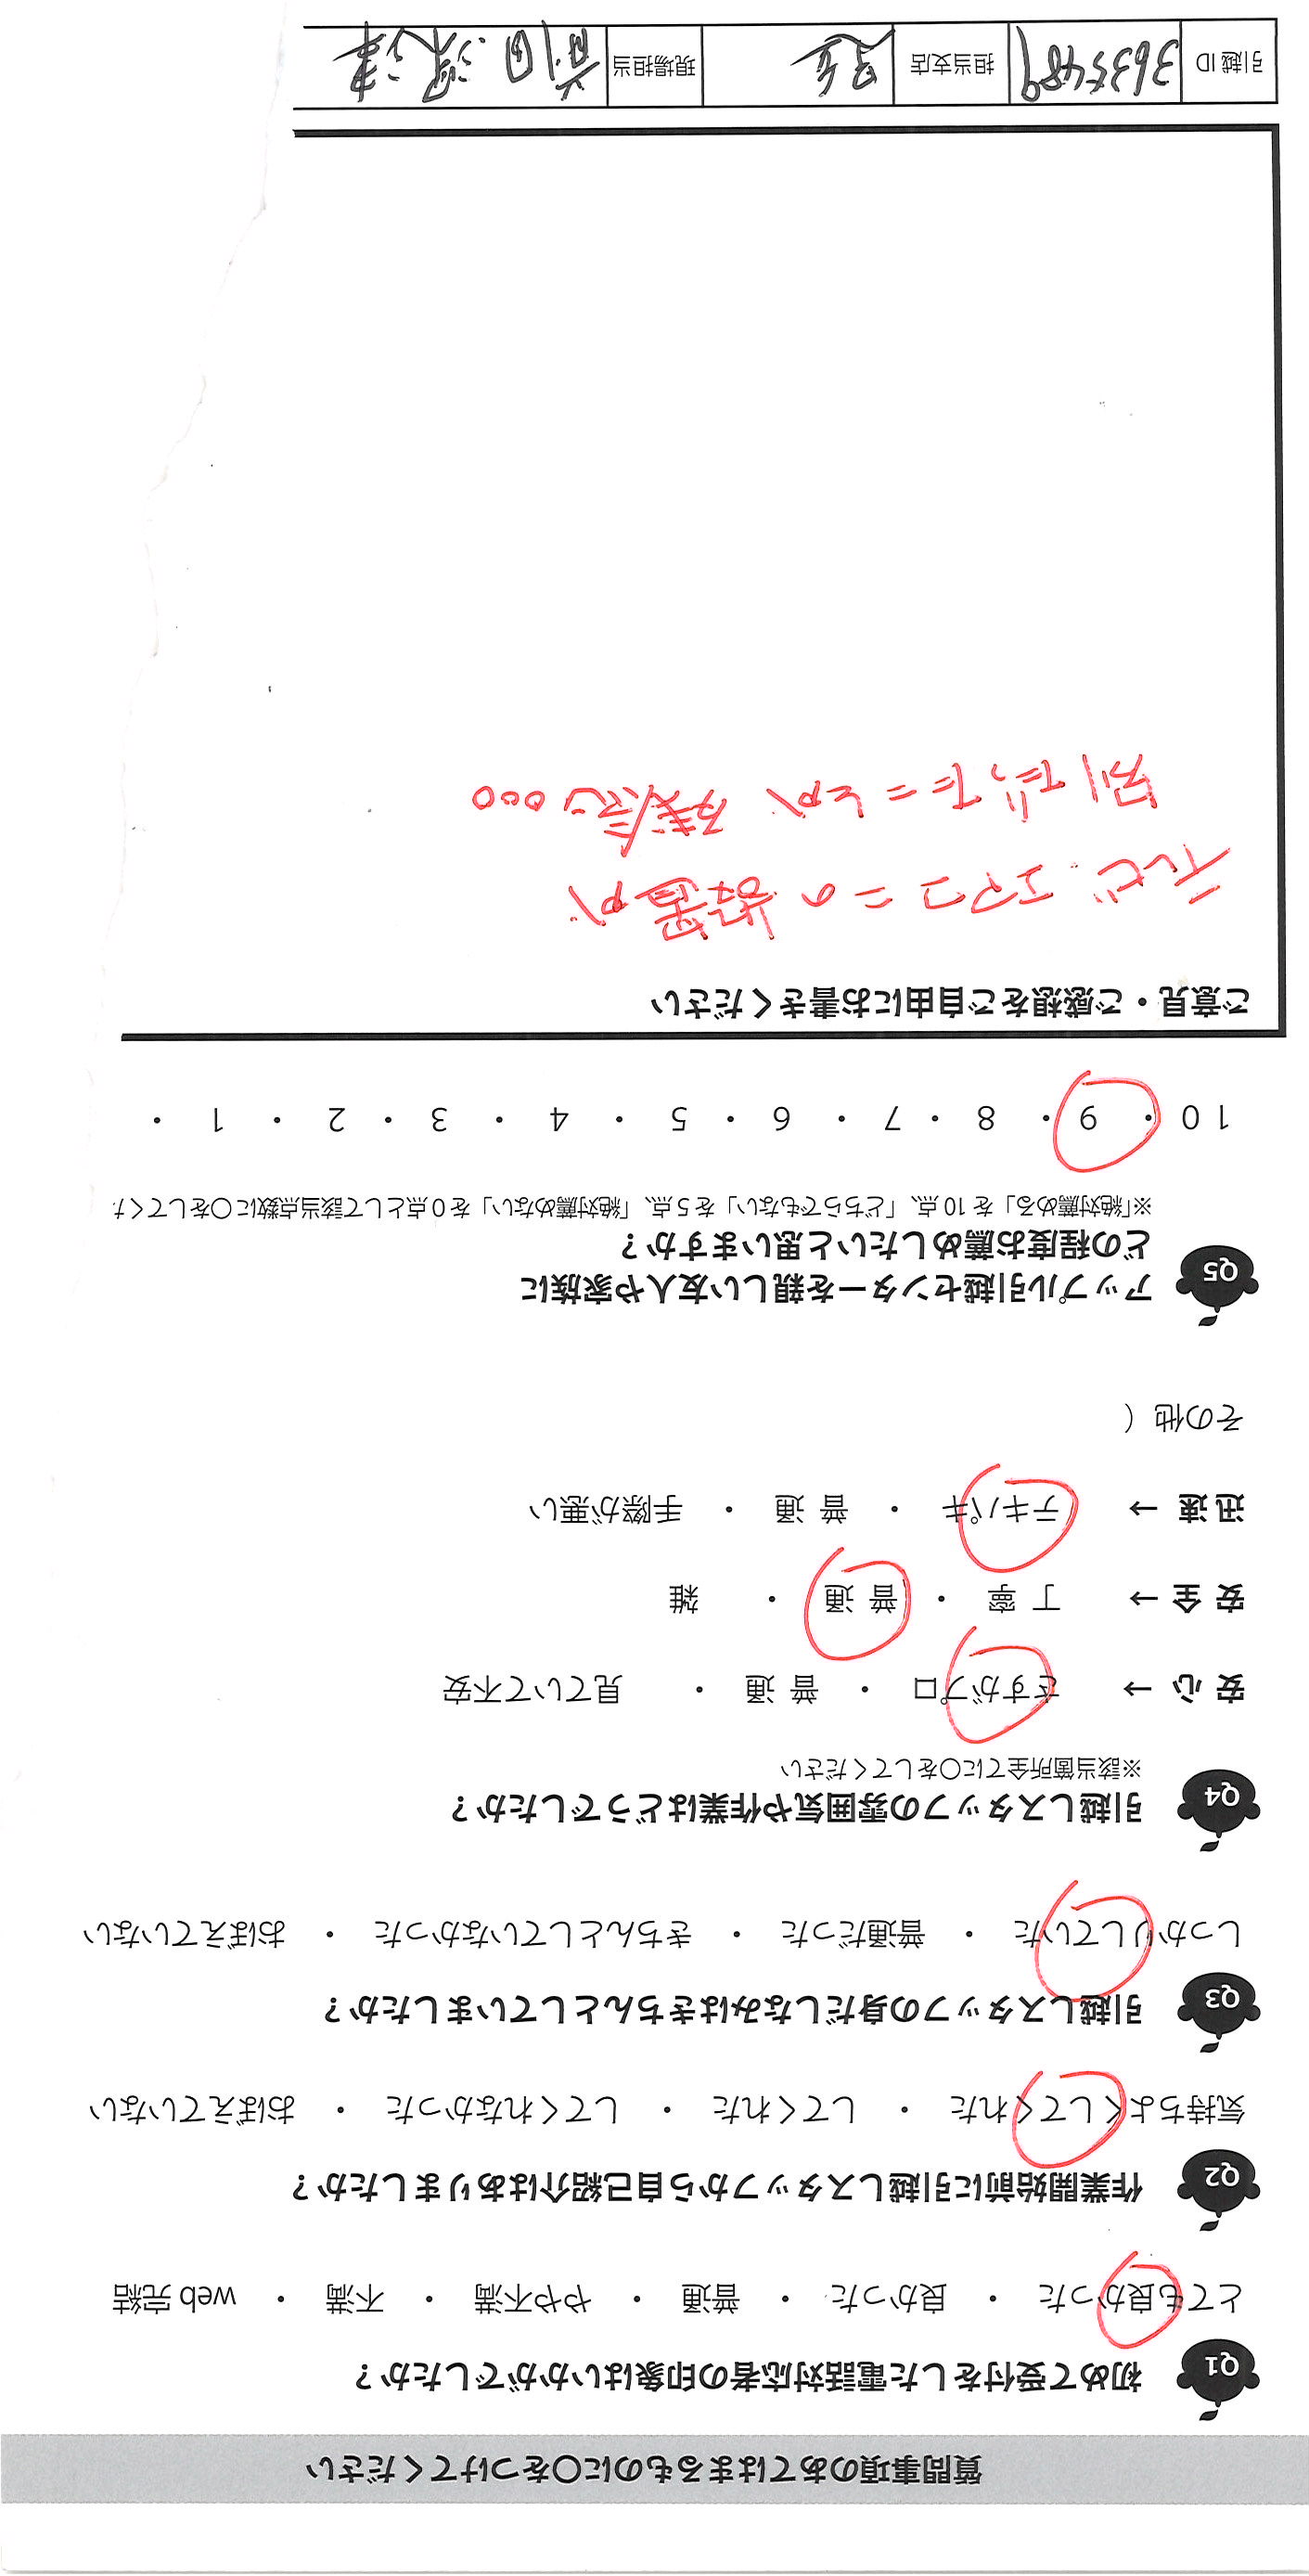 質問事項のあてはまるものに〇をつけてください
Q1 初めて受付をした電話対応者の印象はいかがでしたか？
とても良かった ・ 良かった ・ 普通 ・ やや不満 ・ 不満 ・ web 完結
Q2 作業開始前に引越しスタッフから自己紹介はありましたか？
気持ちよくしてくれた ・ してくれた ・ してくれなかった ・ おぼえていない
Q3 引越しスタッフの身だしなみはきちんとしていましたか？
しっかりしていた ・ 普通だった ・ きちんとしていなかった ・ おぼえていない
Q4 引越しスタッフの雰囲気や作業はどうでしたか？
※該当箇所全てに〇をしてください
安 心 → さすがプロ ・ 普 通 ・ 見ていて不安
安 全 → 丁 寧 ・ 普 通 ・ 雑
迅 速 → テキパキ ・ 普 通 ・ 手際が悪い
その他（
Q5 アップル引越センターを親しい友人や家族に
どの程度お薦めしたいと思いますか？
※「絶対薦める」を 10 点、「どちらでもない」を 5 点、「絶対薦めない」を 0 点として該当点数に〇をしてくだ
10 ・ 9 ・ 8 ・ 7 ・ 6 ・ 5 ・ 4 ・ 3 ・ 2 ・ 1 ・
ご意見・ご感想をご自由にお書きください
テレビ、エアコンの設置が
別だったことが残念。。。
引越 ID 3635489 担当支店 現場担当 前田